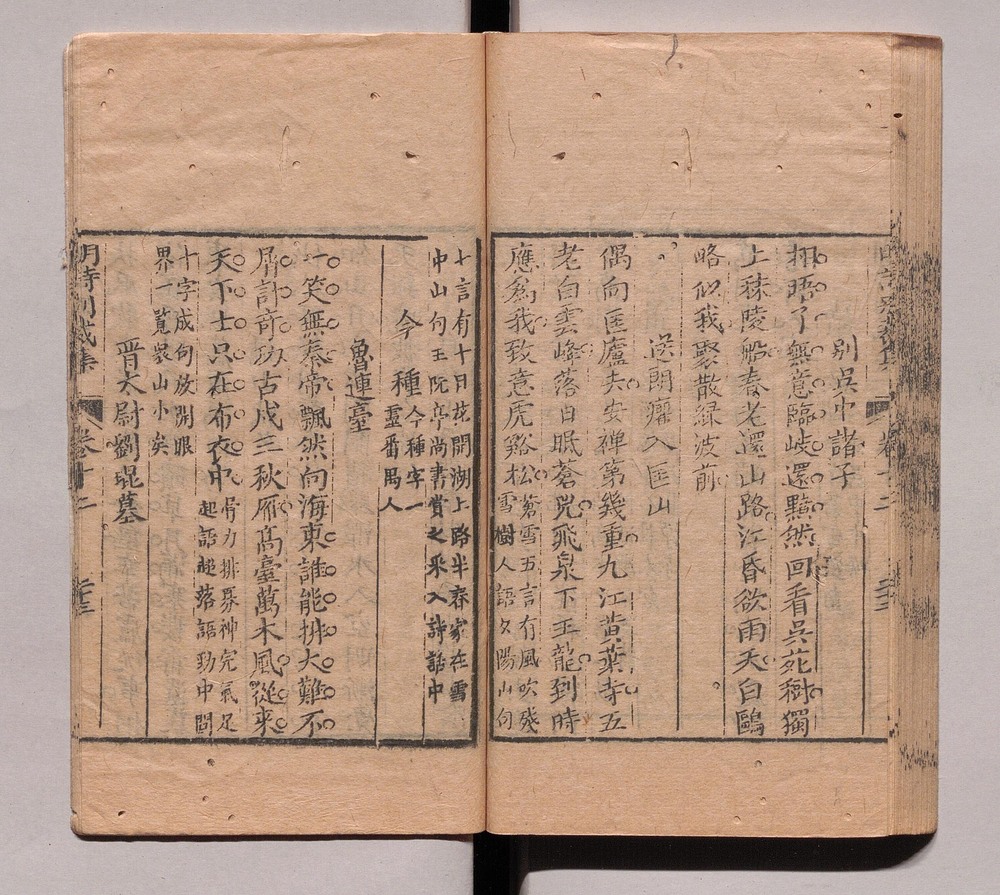 別吳中諸子
相晤了無意臨岐還黯然回看吳苑樹獨
上秣陵船春老還山路江昏欲雨天白鷗
略似我聚散綠波前
送朗癯入匡山
偶向匡廬去安禪第幾重九江黃葉寺五
老白雲峰落日眠蒼兕飛泉下玉龍到時
應爲我致意虎谿松
蒼雪五言有風吹殘
雪樹人語夕陽山句
七言有十日花開湖上路半春家在雪
中山句王阮亭尚書賞之采入詩話中
今種
今種字一
靈番禺人
魯連臺
一笑無秦帝飄然向海東誰能排大難不
屑計奇功古戍三秋雁高臺萬木風從來
天下士只在布衣中
骨力排奡神完氣足
起語超落語勁中間
十字成句放開眼
界一覽衆山小矣
晉太尉劉琨墓
明詩別裁集 卷十二